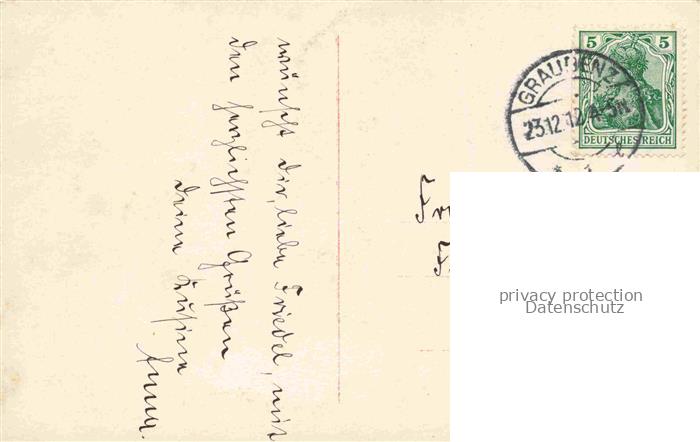 wünscht dir, liebe Friedel, mit
den herzlichsten Grüßen
deine Kusine
Anna.
5 5
DEUTSCHES REICH
GRAUDENZ
23.12.12.4-5N.
privacy protection
Datenschutz